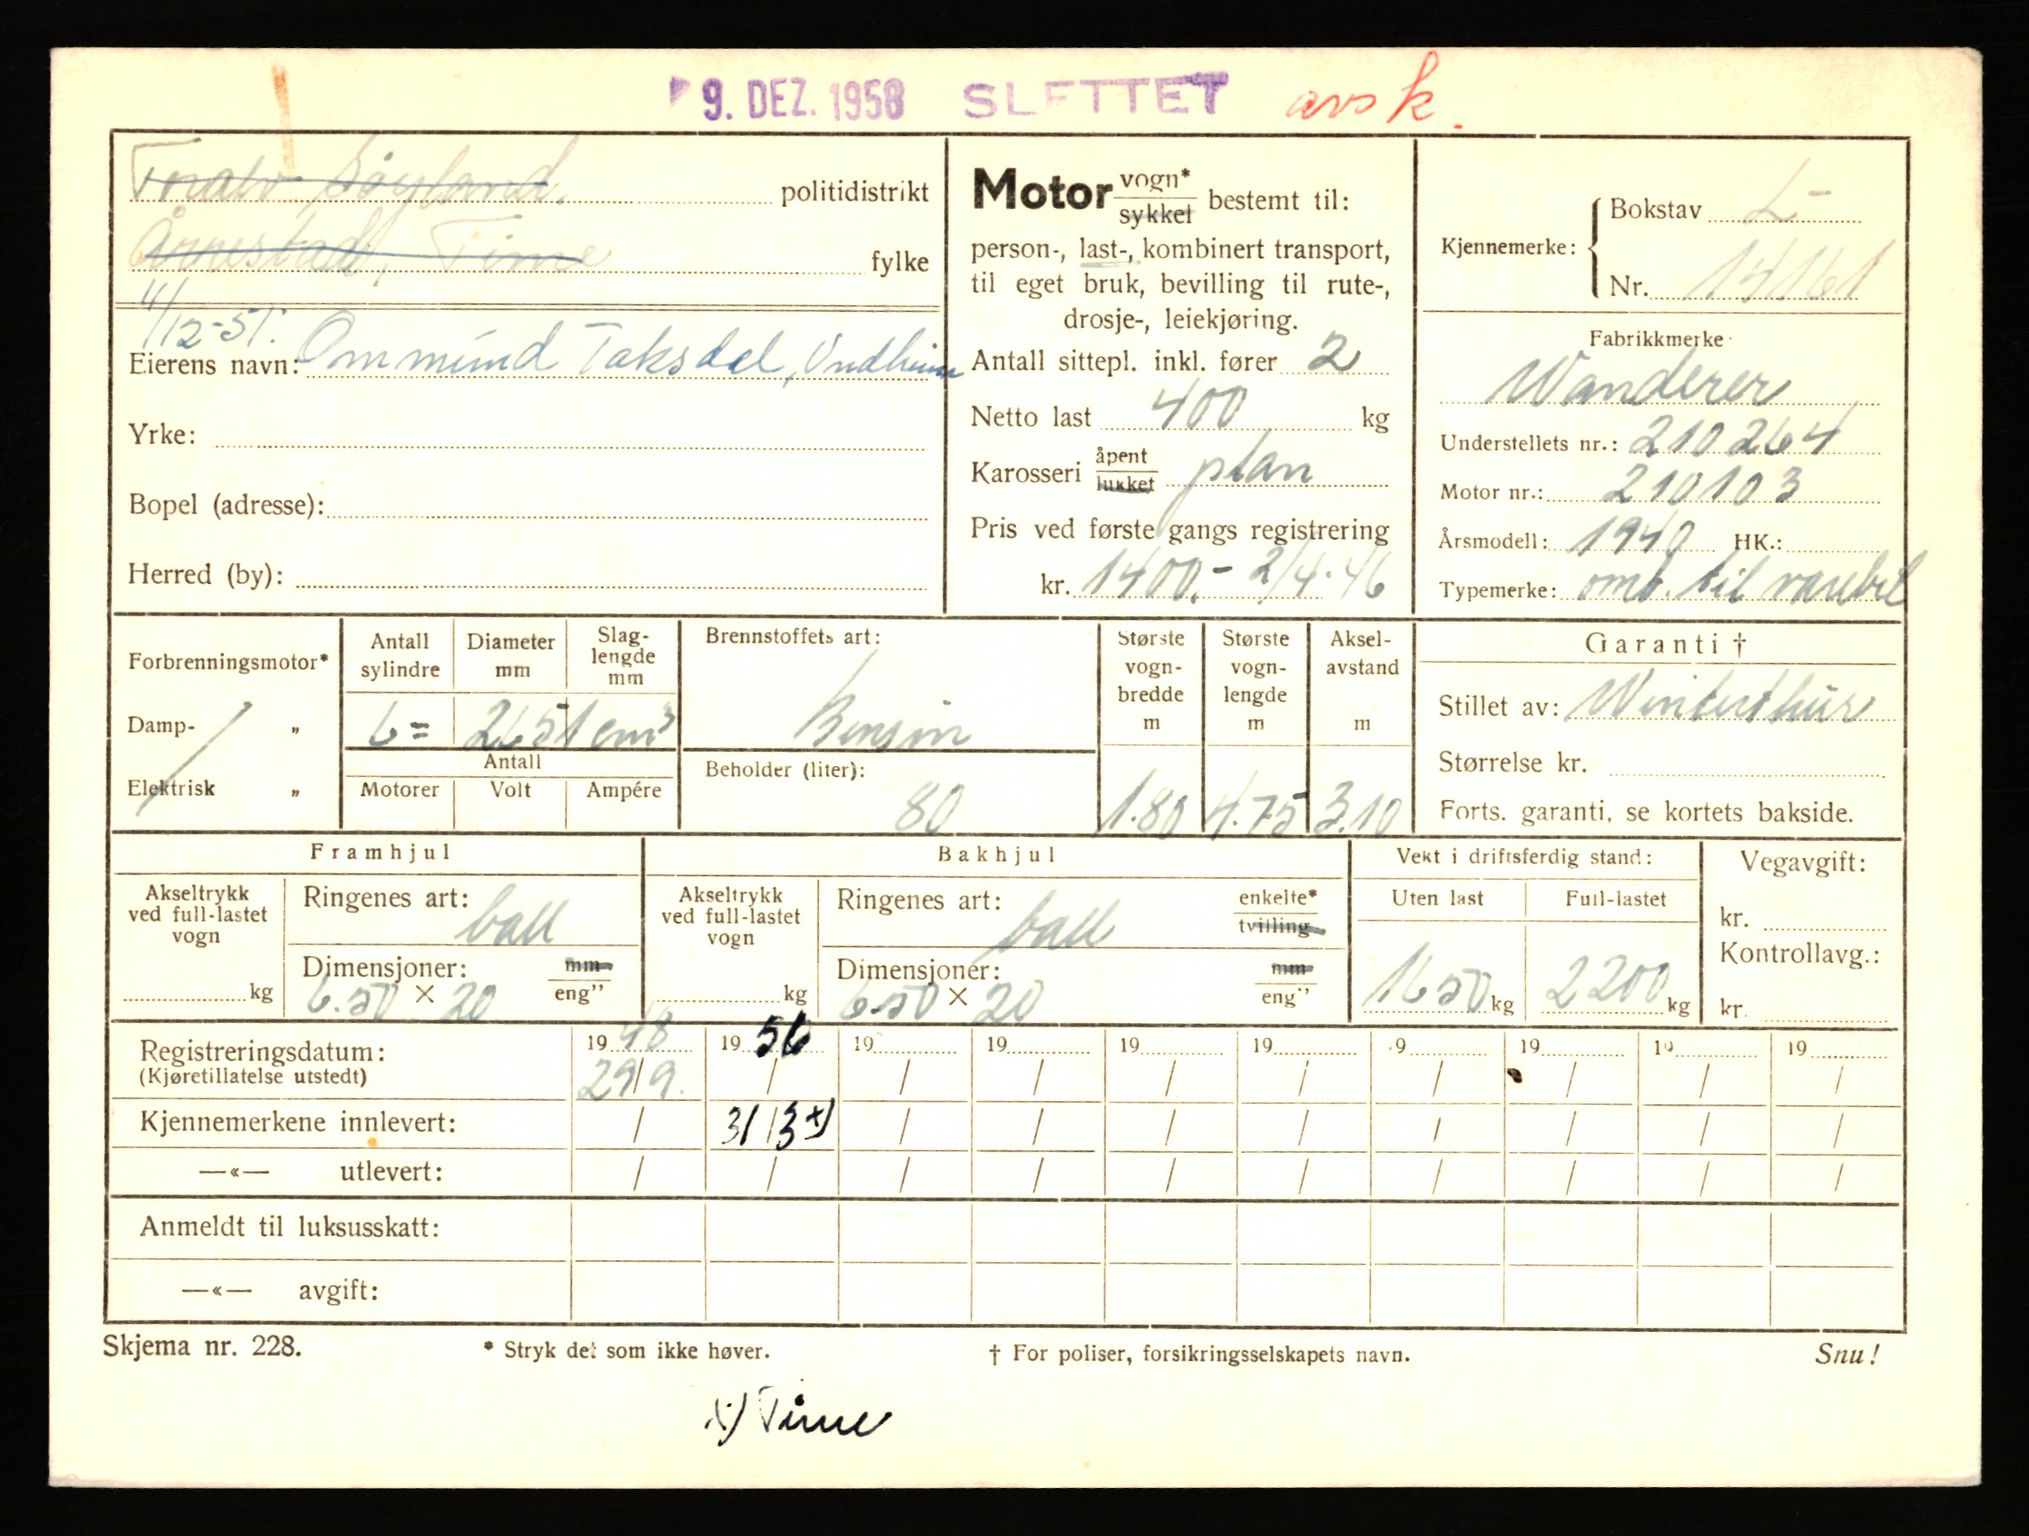 9. DEZ. 1958 SLETTET avsk.
Toralv Søyland. politidistrikt
Årrestad, Time fylke
4/12-51.
Eierens navn: Ommund Taksdal, Undheim
Yrke:
Bopel (adresse):
Herred (by):
Motor vogn*
sykkel bestemt til:
person-, last-, kombinert transport,
til eget bruk, bevilling til rute-,
drosje-, leiekjøring.
Antall sittepl. inkl. fører 2
Netto last 400 kg
Karosseri åpent
lukket plan
Pris ved første gangs registrering
kr. 1400.- 2/4-46
Kjennemerke: Bokstav L-
Nr. 14161
Fabrikkmerke
Wanderer
Understellets nr.: 210264
Motor nr.: 210103
Årsmodell: 1940 HK.:
Typemerke: omb. til varebil
Forbrenningsmotor*
Damp- „
Elektrisk „
Antall sylindre
Diameter mm
Slag-lengde mm
6= 2651 cm³
Antall
Motorer Volt Ampére
Brennstoffets art:
Bensin
Beholder (liter):
80
Største vogn-bredde m
1.80
Største vogn-lengde m
4.75
Aksel-avstand m
3.10
Garanti †
Stillet av: Winterthur
Størrelse kr.
Forts. garanti, se kortets bakside.
Framhjul
Akseltrykk
ved full-lastet
vogn
kg
Ringenes art:
ball
Dimensjoner: mm
6.50 × 20 eng”
Bakhjul
Akseltrykk
ved full-lastet
vogn
kg
Ringenes art: enkelte*
ball tvilling
Dimensjoner: mm
6.50 × 20 eng”
Vekt i driftsferdig stand:
Uten last Full-lastet
1650 kg 2200 kg
Vegavgift:
kr.
Kontrollavg.:
kr.
Registreringsdatum: 1948 1956 19 19 19 19 19 19 19 19
(Kjøretillatelse utstedt) 29/9. / / / / / / / / /
Kjennemerkene innlevert: / 31/3 x) / / / / / / / /
—«— utlevert: / / / / / / / / / /
Anmeldt til luksusskatt:
—«— avgift:
Skjema nr. 228. * Stryk det som ikke høver. † For poliser, forsikringsselskapets navn. Snu!
x) Time